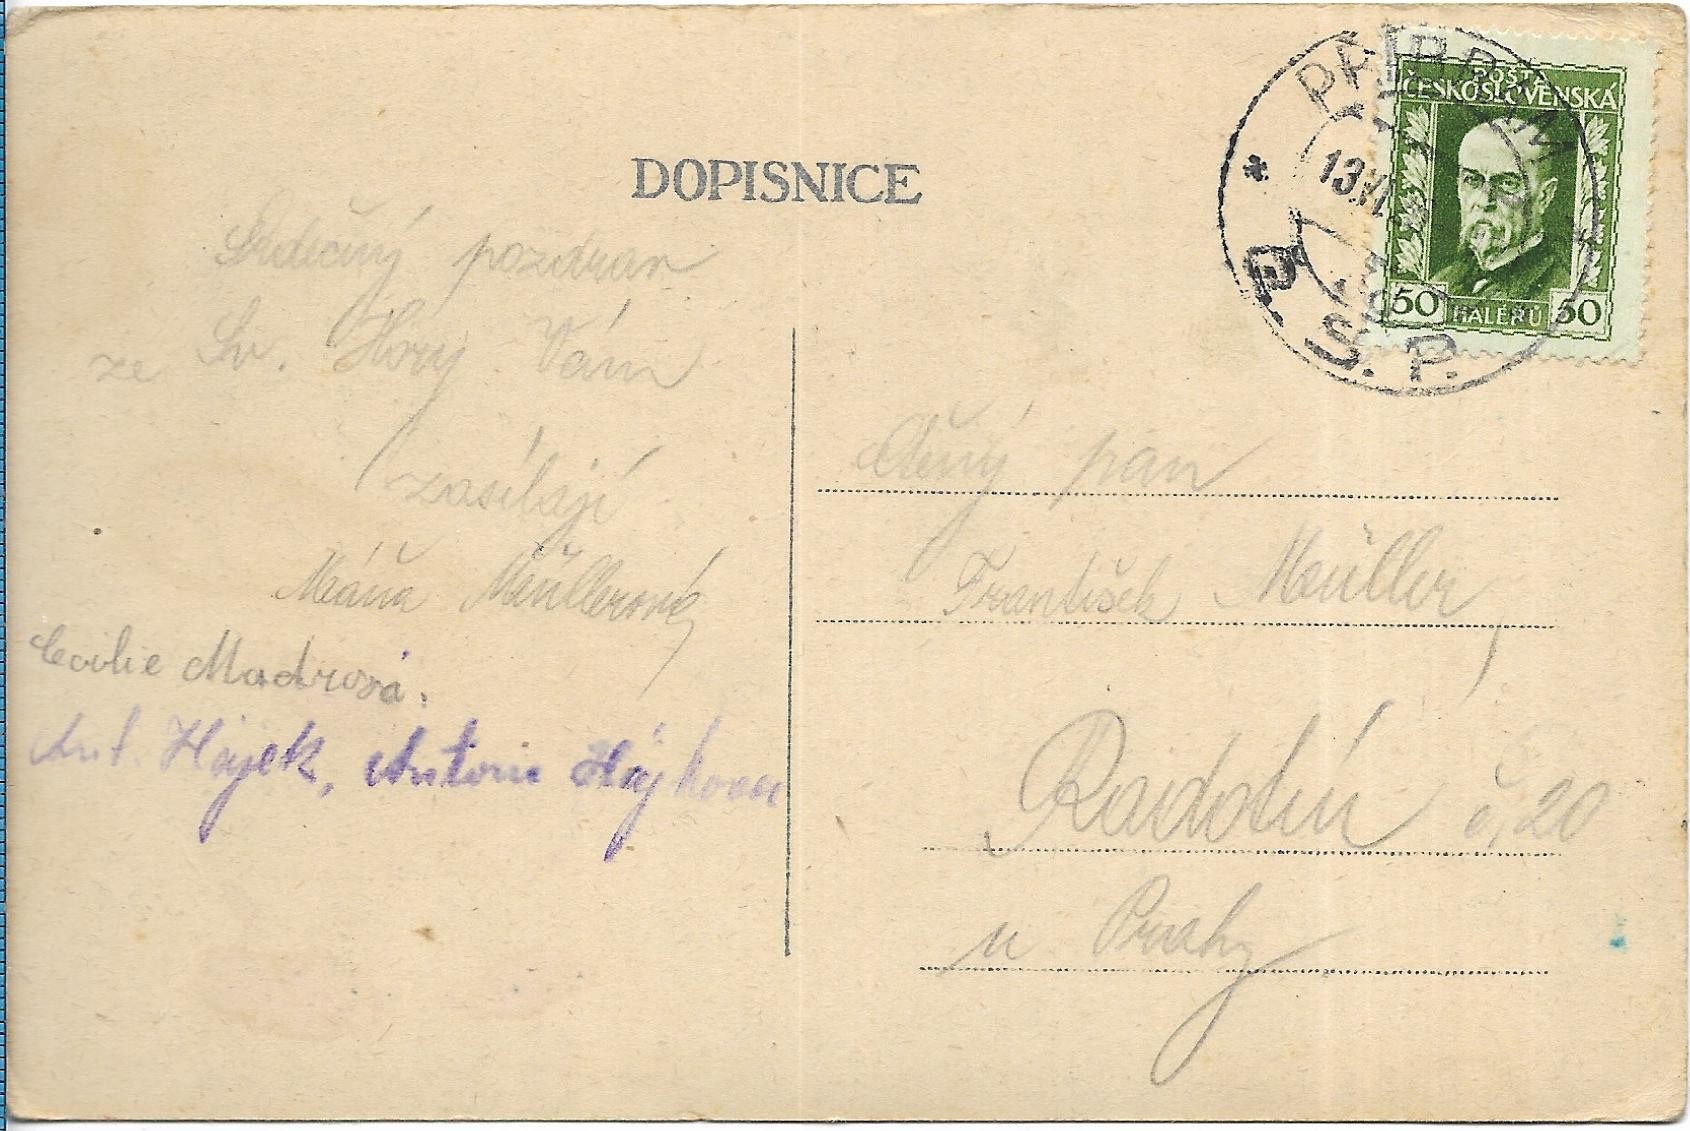 DOPISNICE
PŘÍBRAM
13.VI.
S. P.
POŠTA
ČESKOSLOVENSKÁ
50 HALÉŘŮ 50
Srdečný pozdrav
ze Sv. Hory Vám
zasílají
Máňa Müllerová
Cecilie Madrová.
Ant. Hájek, Antonie Hájková
Ctěný pan
František Müller,
Radotín č. 20
u Prahy